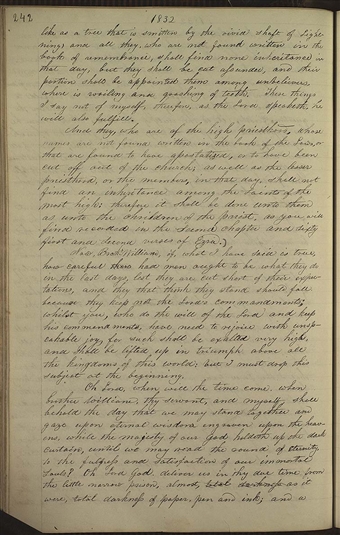 242
1832
like as a tree that is smitten by the vivid shaft of light-
ning; and all they, who are not found written in the
book of remembrance, shall find none inheritance in
that day, but they shall be cut asunder, and their
portion shall be appointed them among unbelievers
where is wailing and gnashing of teeth. These things
I say not of myself, therefore, as the Lord speaketh, he
will also fulfill.
And they, who are of the high priesthood, whose
names are not found written in the book of the law, or
that are found to have apostatised, or to have been
cut off out of the church; as well as the lesser
priesthood, or the members, in that day, shall not
find an inheritance among the saints of the
most high; therefore it shall be done unto them
as unto the children of the priest, as you will
find recorded in the second chapter and sixty
first and second verses of Ezra.)
Now, Broth. William, if, what I have said is true,
how careful then had men ought to be what they do
in the last days, lest they are cut short of their expec-
tations, and they that think they stand should fall
because they kept not the Lord's commandments;
whilst you, who do the will of the Lord and keep
his commandments, have need to rejoice with unsp-
eakable joy, for such shall be exalted very high,
and shall be lifted up in triumph above all
the kingdoms of this world: but I must drop this
subject at the beginning.
Oh Lord, when will the time come when
brother William, thy servant, and myself, shall
behold the day that we may stand together and
gaze upon eternal wisdom engraven upon the heav-
ens, while the majesty of our God holdeth up the dark
curtain, until we may read the round of eternity
to the fulness and satisfaction of our immortal
souls? Oh Lord God deliver us in thy due time from
the little narrow prison, almost, total darkness as it
were, total darkness of paper, pen and ink; and a